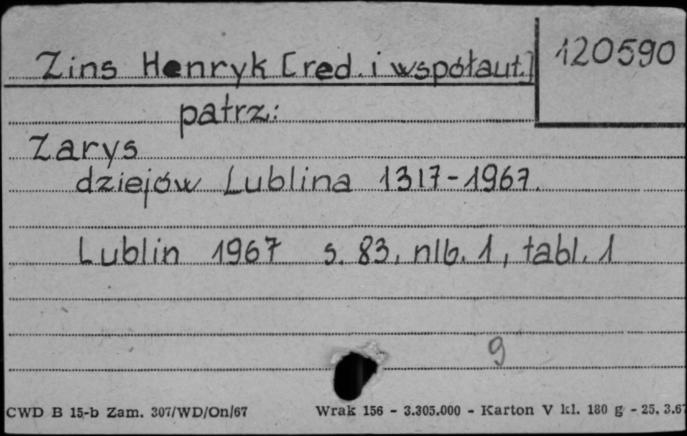 Zins Henryk [red. i współaut.]
120590
patrz:
Zarys
dziejów Lublina 1317-1967.
Lublin 1967 s. 83, nlb. 1, tabl. 1
9
CWD B 15-b Zam. 307/WD/On/67 Wrak 156 - 3.305.000 - Karton V kl. 180 g - 25. 3.67